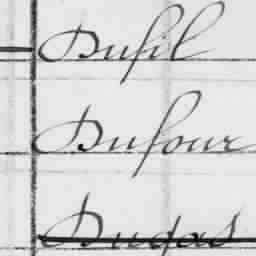 Dufil
Dufour
Dugas